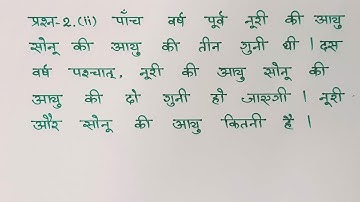 प्रश्न-2.(ii) पाँच वर्ष पूर्व नूरी की आयु
सोनू की आयु की तीन गुनी थी । दस
वर्ष पश्चात्, नूरी की आयु सोनू की
आयु की दो गुनी हो जाएगी । नूरी
और सोनू की आयु कितनी है ।